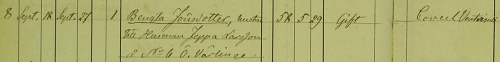 8 Sept. 18 Sept. 27 1 Bengta Jönsdotter, hustru 58 5 29 Gift
till Husman Jeppa Larsson
å No 6 Ö. Värlinge